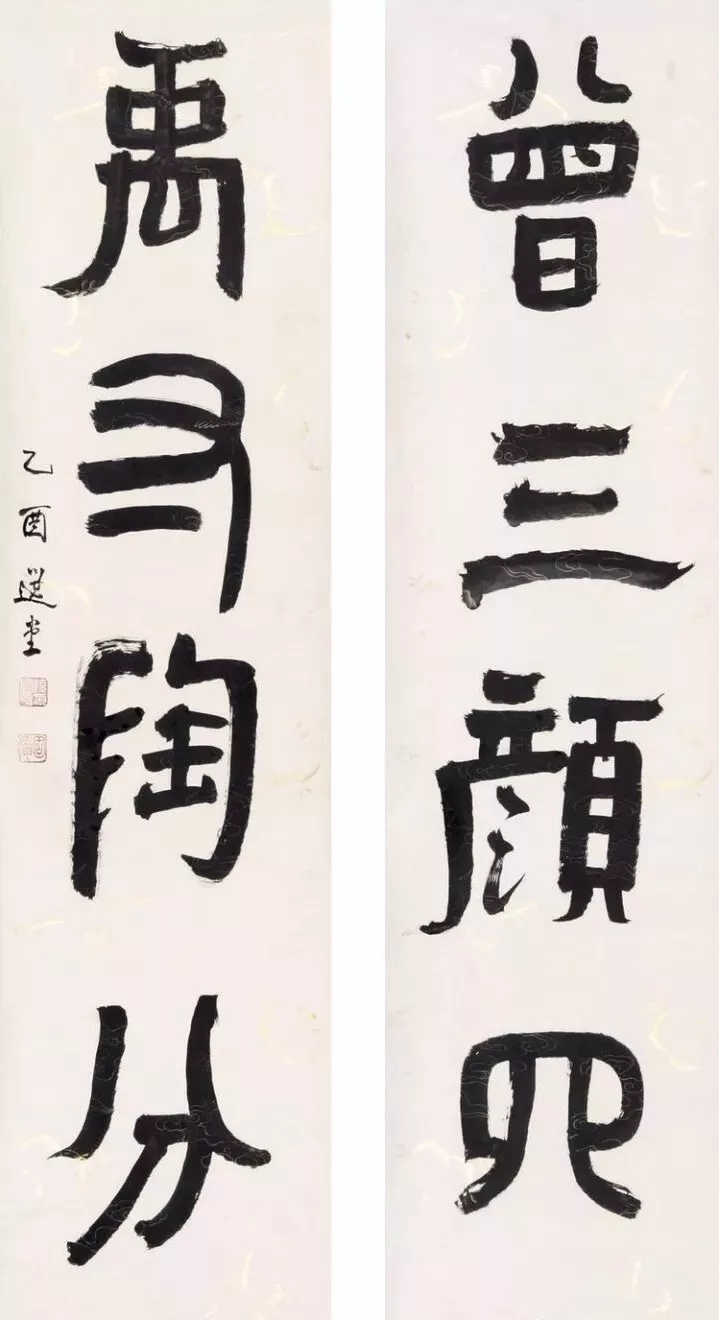 曾三顏四
禹寸陶分
乙酉選堂